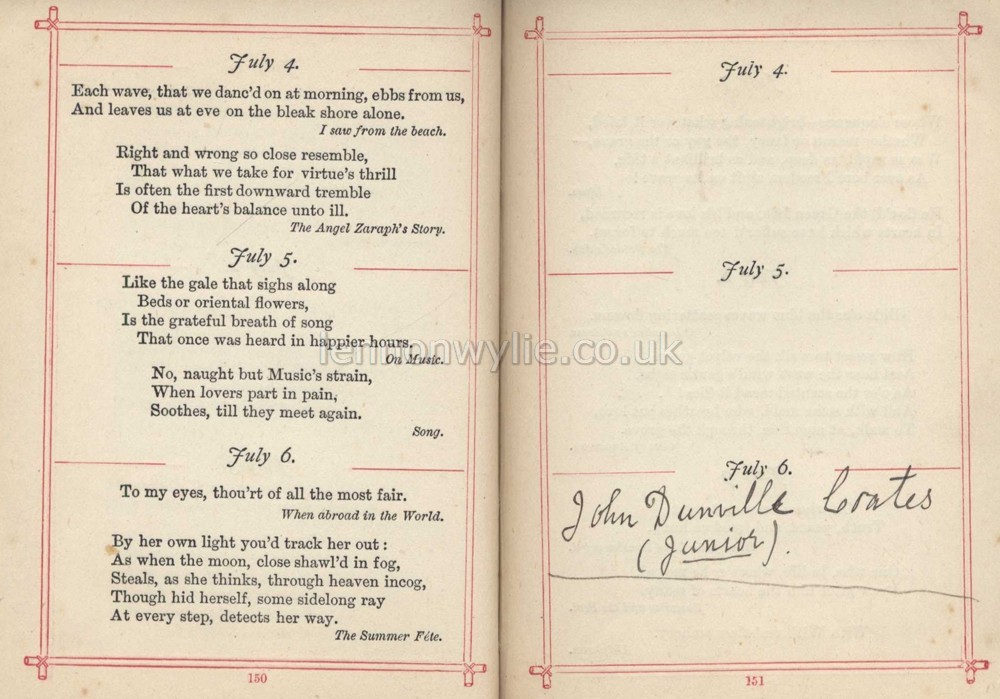 July 4.
Each wave, that we danc'd on at morning, ebbs from us,
And leaves us at eve on the bleak shore alone.
I saw from the beach.
Right and wrong so close resemble,
That what we take for virtue's thrill
Is often the first downward tremble
Of the heart's balance unto ill.
The Angel Zaraph's Story.
July 5.
Like the gale that sighs along
Beds or oriental flowers,
Is the grateful breath of song
That once was heard in happier hours.
On Music.
No, naught but Music's strain,
When lovers part in pain,
Soothes, till they meet again.
Song.
July 6.
To my eyes, thou'rt of all the most fair.
When abroad in the World.
By her own light you'd track her out :
As when the moon, close shawl'd in fog,
Steals, as she thinks, through heaven incog,
Though hid herself, some sidelong ray
At every step, detects her way.
The Summer Féte.
150
July 4.
July 5.
July 6.
John Dunville Coates
(Junior).
151
lennonwylie.co.uk